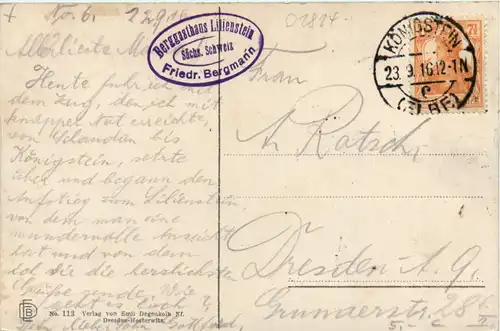 No. 6. 22.9.16
Allerliebste
Heute fuhr ich mit
dem Zug, den ich mit
knapper Not erreichte,
von Schandau bis
Königstein, setzte
über und begann den
Aufstieg zum Lilienstein,
von dem man eine
wundervolle Aussicht
hat und von dem
ich dir die herzlichsten
Grüße sende. Wie
geht es Euch?
Berggasthaus Lilienstein
Sächs. Schweiz
Friedr. Bergmann
01824
KÖNIGSTEIN
23.9.16.12-1N.
c
(ELBE)
7½
Frau
A. Ratsch
Dresden A. 9.
Grunaerstr. 28 II
No. 113 Verlag von Emil Degenkolb Nf.
Dresden-Hosterwitz.